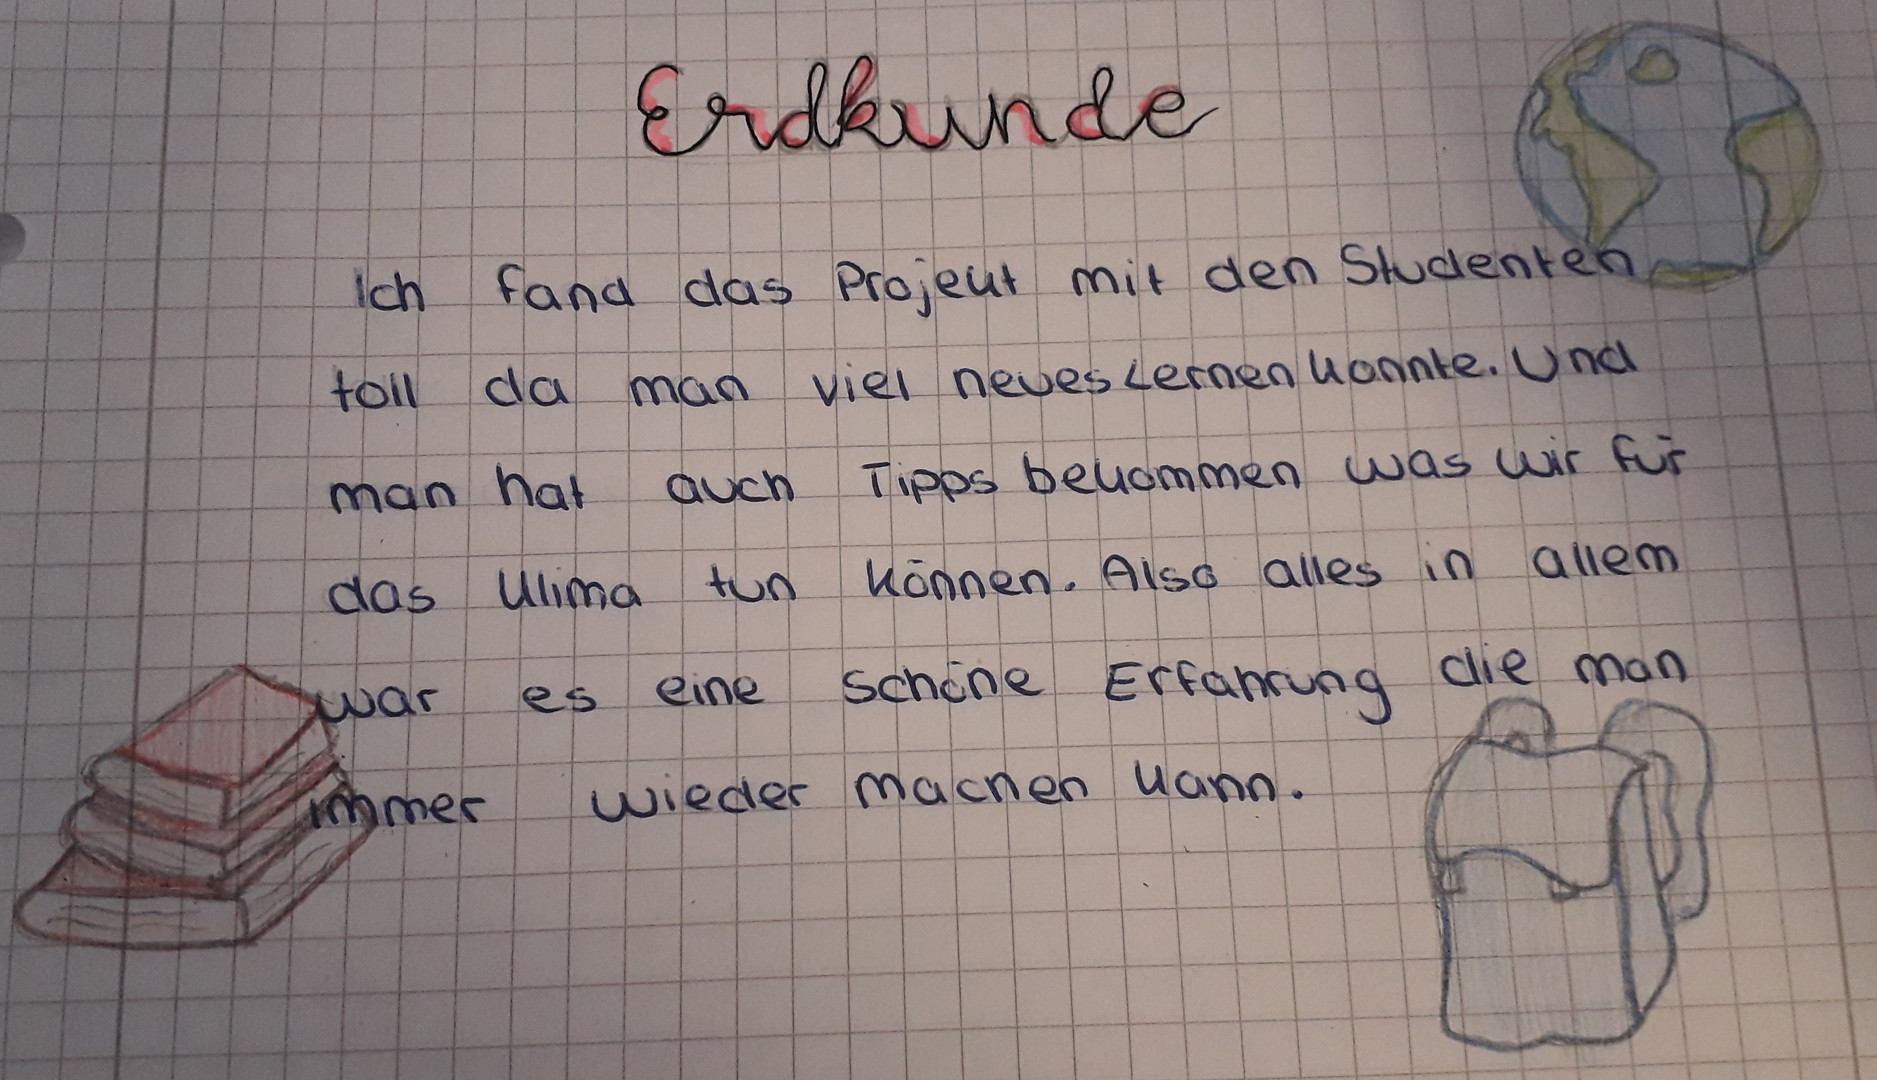 Erdkunde
Ich fand das Projekt mit den Studenten
toll da man viel neues Lernen konnte. Und
man hat auch Tipps bekommen was wir für
das Klima tun können. Also alles in allem
war es eine schöne Erfahrung die man
immer wieder machen kann.